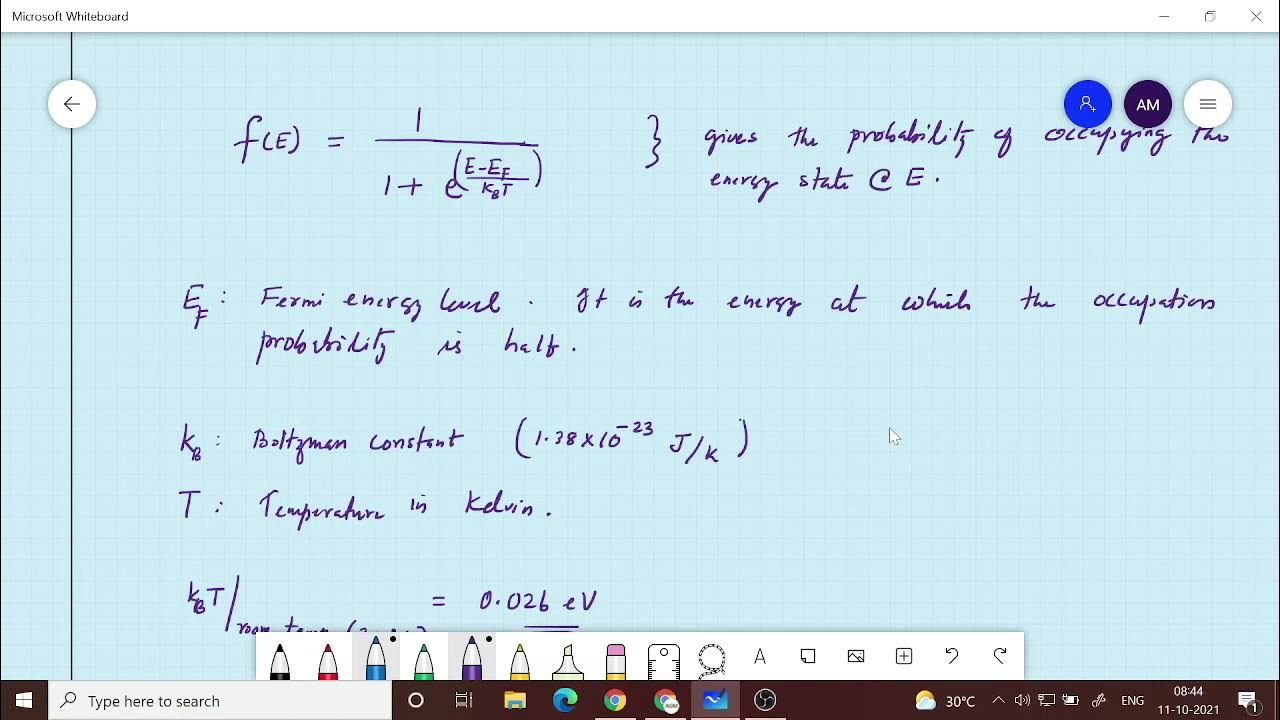 Microsoft Whiteboard
AM
f(E) = 1 / (1 + e^((E-E_F)/(K_B T))) } gives the probability of occupying the
energy state @ E.
E_F : Fermi energy level . It is the energy at which the occupation
probability is half.
k_B : Boltzman constant (1.38 × 10^-23 J/K)
T : Temperature in Kelvin.
k_B T / = 0.026 eV
room temp
A
Type here to search
AGM
30°C
ENG
08:44
11-10-2021
1